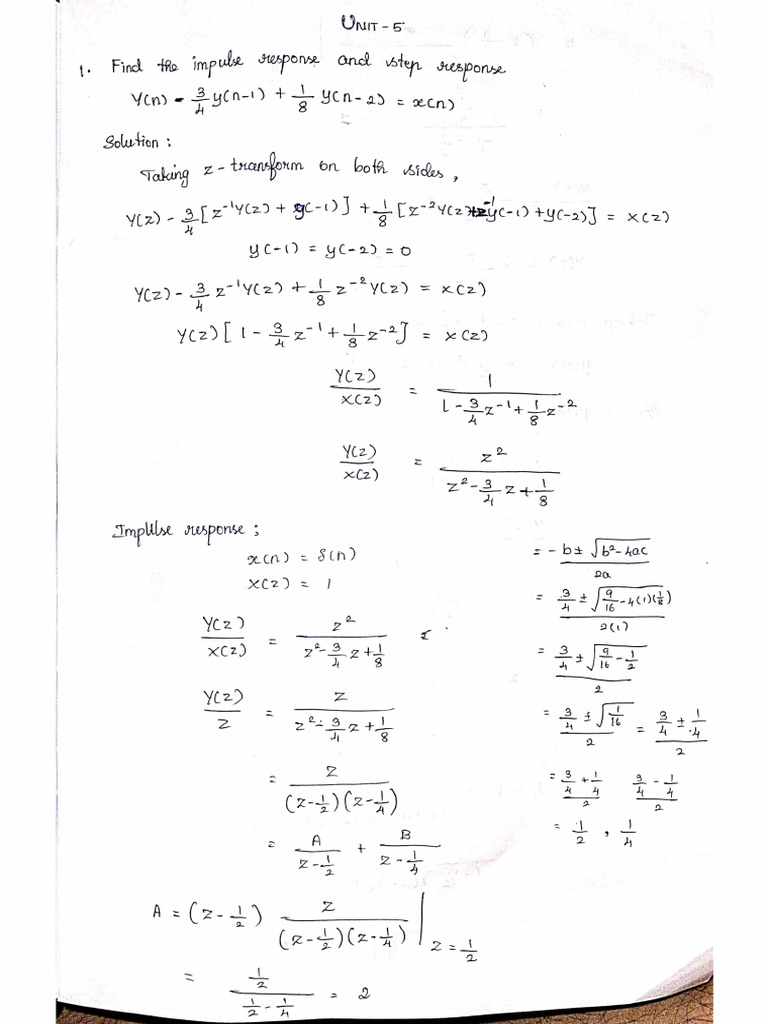 UNIT - 5
1. Find the impulse response and step response
y(n) - 3/4 y(n-1) + 1/8 y(n-2) = x(n)
Solution :
Taking z - transform on both sides,
Y(z) - 3/4 [z⁻¹Y(z) + y(-1)] + 1/8 [z⁻²Y(z) + z⁻¹y(-1) + y(-2)] = X(z)
y(-1) = y(-2) = 0
Y(z) - 3/4 z⁻¹Y(z) + 1/8 z⁻²Y(z) = X(z)
Y(z) [1 - 3/4 z⁻¹ + 1/8 z⁻²] = X(z)
Y(z)/X(z) = 1/(1 - 3/4 z⁻¹ + 1/8 z⁻²)
Y(z)/X(z) = z²/(z² - 3/4 z + 1/8)
Implulse response ;
x(n) = δ(n)
X(z) = 1
Y(z)/X(z) = z²/(z² - 3/4 z + 1/8)
Y(z)/z = z/(z² - 3/4 z + 1/8)
= z/((z - 1/2)(z - 1/4))
= A/(z - 1/2) + B/(z - 1/4)
= -b ± √(b² - 4ac) / 2a
= 3/4 ± √(9/16 - 4(1)(1/8)) / 2(1)
= 3/4 ± √(9/16 - 1/2) / 2
= 3/4 ± √(1/16) / 2 = 3/4 ± 1/4 / 2
= 3/4 + 1/4 / 2   3/4 - 1/4 / 2
= 1/2 , 1/4
A = (z - 1/2) z/((z - 1/2)(z - 1/4)) | z = 1/2
= 1/2 / (1/2 - 1/4) = 2